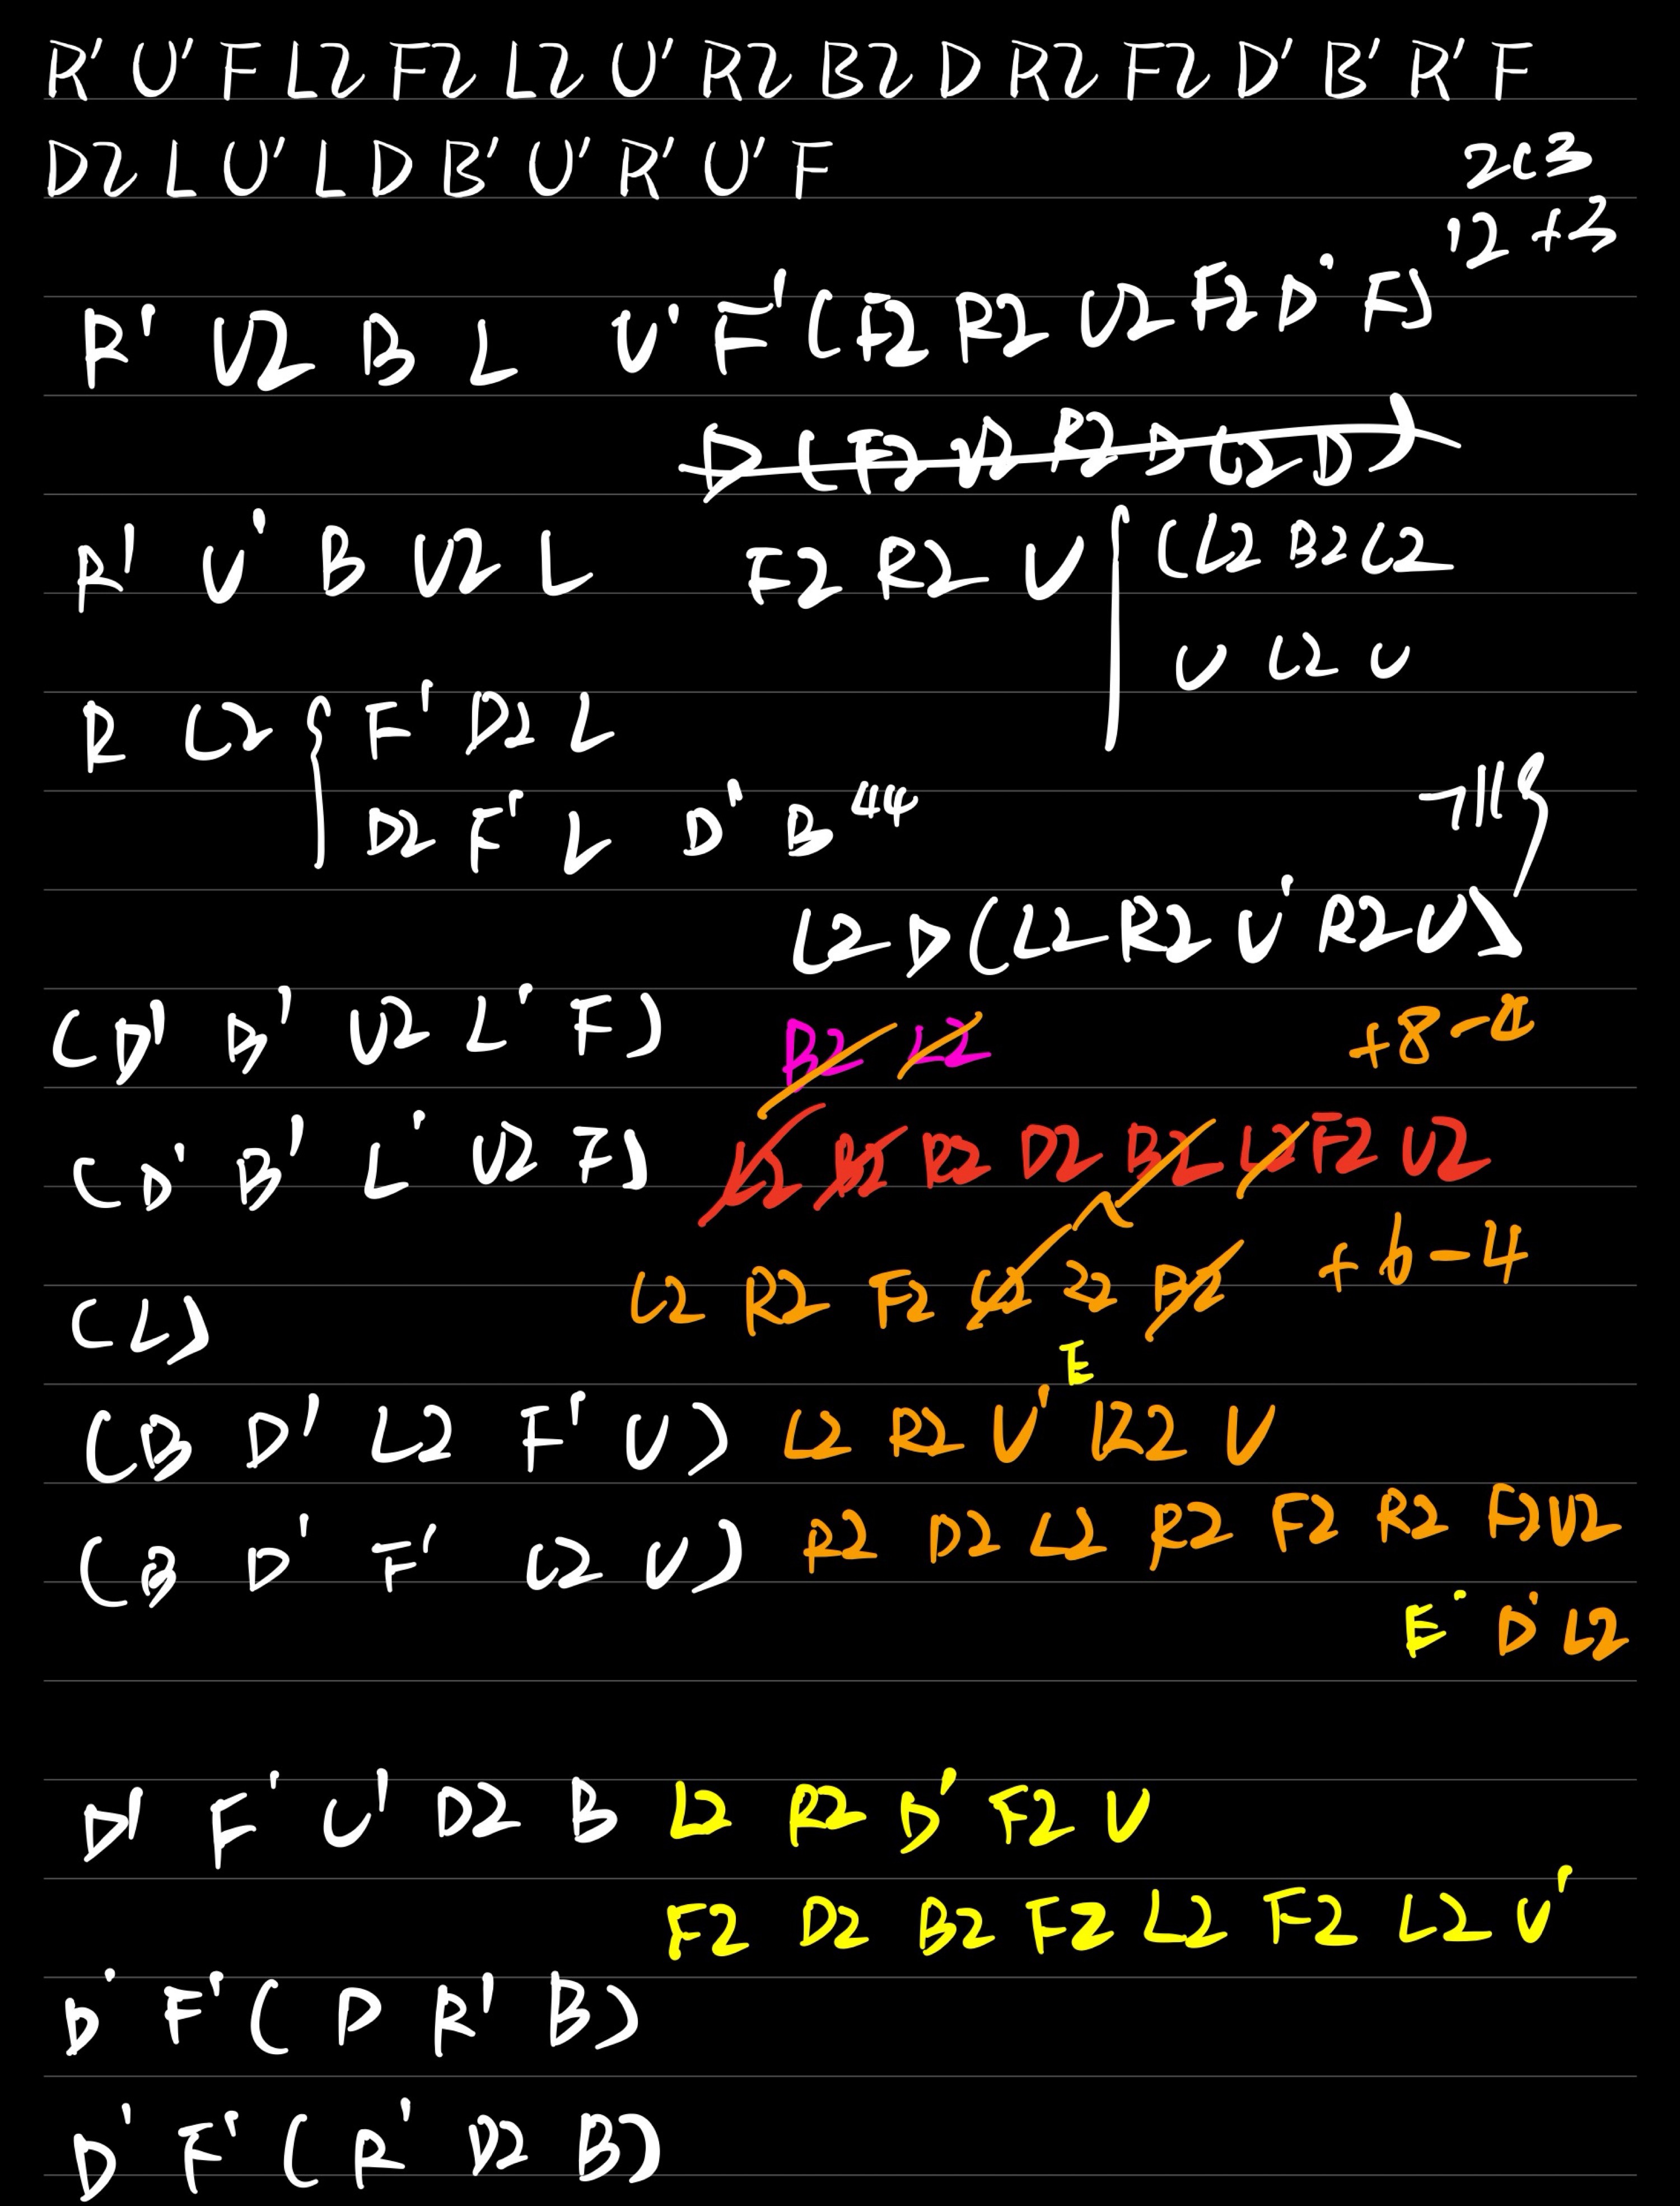 R' U' F L2 F2 L2 U' R2 B2 D R2 F2 D' B' R' F
D2 L U' L D B' U' R' U' F
2c3
12 +3
R' U2 B L U' F' (F2 R2 U2 F2 D' F)
R' U' B U2 L F2 R2 U (L2 B2 L2
U L2 U
R L2 F' D2 L
D2 F' L D' B 44
L2 D (L2 R2 U' R2 U)
(D' B' U2 L' F) B2 L2 +8-4
(D' B' L' U2 F) L2 B2 R2 D2 B2 L2 F2 U2
(L) L2 R2 F2 B2 +6-4
E
(B D' L2 F' U) L2 R2 U' L2 U
(B D' F' L2 U) R2 D2 L2 R2 F2 R2 F2 U2
E' D' L2
D' F' U' D2 B L2 R2 D' F2 U
F2 D2 B2 F2 L2 F2 L2 U'
D' F' (D R' B)
D' F' (R' D2 B)